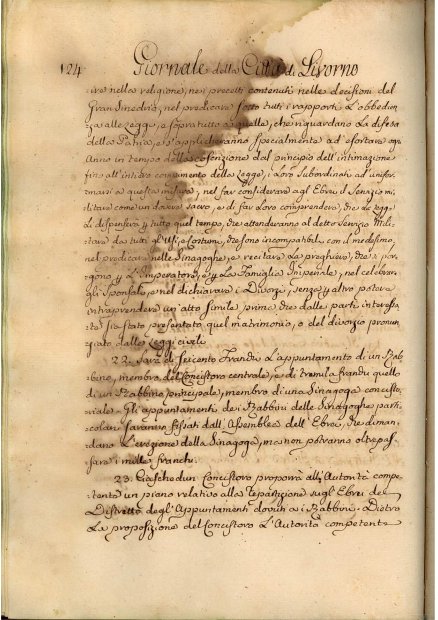 124 Giornale della Città di Livorno
ire nella religione, nei precetti contenuti nelle decisioni del
Gran Sinedrio, nel predicare sotto tutti i rapporti L'obbedien
za alle Leggi, e sopra tutto a quelle, che riguardano La difesa
della Patria, e s'applicheranno specialmente ad esortare ogn
Anno in tempo della coscrizione dal principio dell'intimazione
fino all'intiero compimento della Legge, i Loro Subordinati ad unifor
marsi a questa misura, nel far considerare agl'Ebrei il Servizio mi
litare come un dovere sacro, e di far Loro comprendere, che La Legge
Li dispenserà p tutto quel tempo, che attenderanno al detto Servizio Mili
tare da tutti gl'Usi, e Costumi, che sono incompatibili con il medesimo,
nel predicare nelle Sinagoghe, e recitare La preghiera, che si por
gono p L'Imperatore, e p La Famiglia Imperiale, nel celebrar
gli Sponsali, e nel dichiarare i Divorzj, senza p altro potere
intraprendere un'atto simile prima che dalle parti interessa
te sia stato presentato quel matrimonio, o del divorzio pronun
ziato dalle Leggi civili.
22. Sarà di seicento Franchi L'appuntamento di un Rab
bino, membro del Concistoro centrale, e di tremila franchi quello
di un Rabbino principale, membro di una Sinagoga concisto
riale. Gli appuntamenti dei i Rabbini delle Sinagoghe parti
colari saranno fissati dall'Assemblea dell'Ebrei, che diman
darono L'erezione della Sinagoga, ma non potranno oltrepas
sare i mille franchi.
23. Ciascheduno Concistoro proporrà all'Autorità compe
tente un piano relativo alla repartizione sugl'Ebrei del
Distretto degl'Appuntamenti dovuti a i Rabbini. Dietro
La proposizione del Concistoro L'Autorità competente